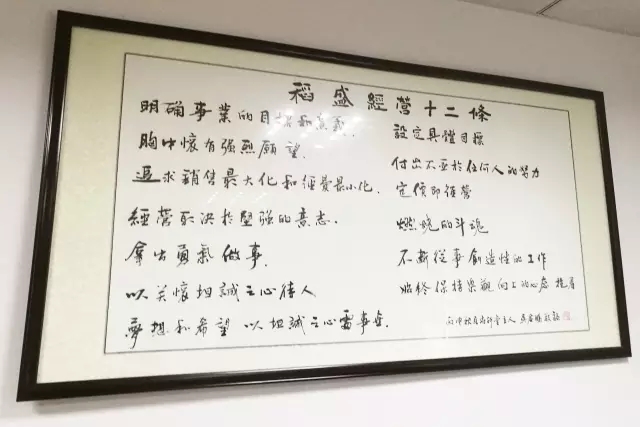 稻盛經營十二條
明确事業的目的和意義.
設定具體目標
胸中懷有强烈願望.
付出不亚於任何人的努力
追求銷售最大化和經費最小化.
定價即經營
經營取决於堅强的意志.
燃燒的斗魂
拿出勇氣做事.
不斷從事創造性的工作
以关懷坦誠之心待人
始終保持樂觀向上的心态 抱着
夢想和希望 以坦誠之心處事